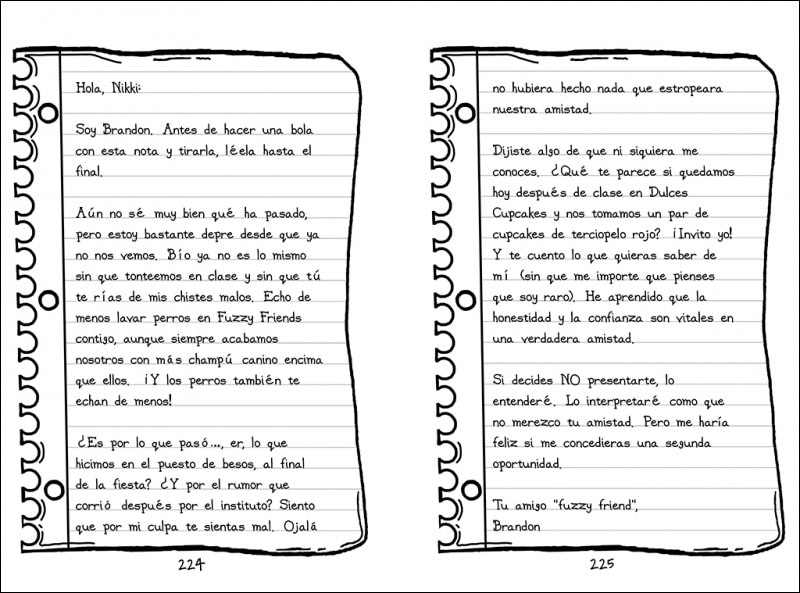 Hola, Nikki:
Soy Brandon. Antes de hacer una bola
con esta nota y tirarla, léela hasta el
final.
Aún no sé muy bien qué ha pasado,
pero estoy bastante depre desde que ya
no nos vemos. Bío ya no es lo mismo
sin que tonteemos en clase y sin que tú
te rías de mis chistes malos. Echo de
menos lavar perros en Fuzzy Friends
contigo, aunque siempre acabamos
nosotros con más champú canino encima
que ellos. ¡Y los perros también te
echan de menos!
¿Es por lo que pasó..., er, lo que
hicimos en el puesto de besos, al final
de la fiesta? ¿Y por el rumor que
corrió después por el instituto? Siento
que por mi culpa te sientas mal. Ojalá
224
no hubiera hecho nada que estropeara
nuestra amistad.
Dijiste algo de que ni siquiera me
conoces. ¿Qué te parece si quedamos
hoy después de clase en Dulces
Cupcakes y nos tomamos un par de
cupcakes de terciopelo rojo? ¡Invito yo!
Y te cuento lo que quieras saber de
mí (sin que me importe que pienses
que soy raro). He aprendido que la
honestidad y la confianza son vitales en
una verdadera amistad.
Si decides NO presentarte, lo
entenderé. Lo interpretaré como que
no merezco tu amistad. Pero me haría
feliz si me concedieras una segunda
oportunidad.
Tu amigo "fuzzy friend",
Brandon
225